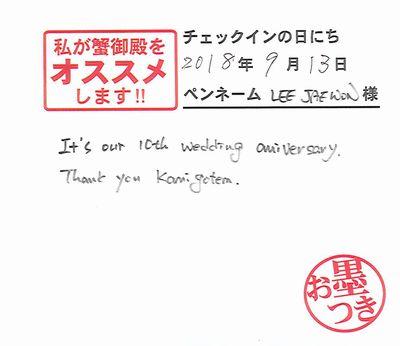 私が蟹御殿を
オススメ
します!!
チェックインの日にち
2018年 9月 13日
ペンネーム LEE JAEWON 様
It's our 10th wedding anniversary.
Thank you Kanigoten.
お墨つき